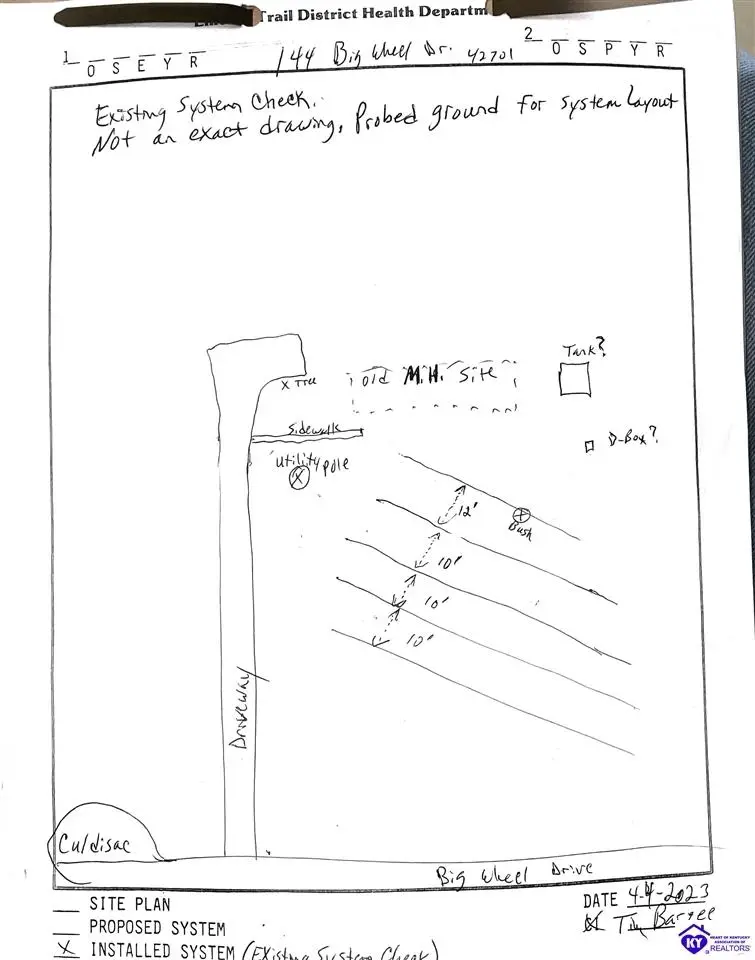 Trail District Health Departm
1 O S E Y R
144 Big Wheel Dr. 42701
2 O S P Y R
Existing System Check.
Not an exact drawing, Probed ground for system Layout
Tank?
X Tree
old M.H. Site
Sidewalk
D-Box?
utility pole
X
12'
Bush
10'
10'
10'
Driveway
Culdisac
Big Wheel Drive
SITE PLAN
DATE 4-4-2023
PROPOSED SYSTEM
X INSTALLED SYSTEM (Existing System Check)
KY
HEART OF KENTUCKY
ASSOCIATION OF
REALTORS